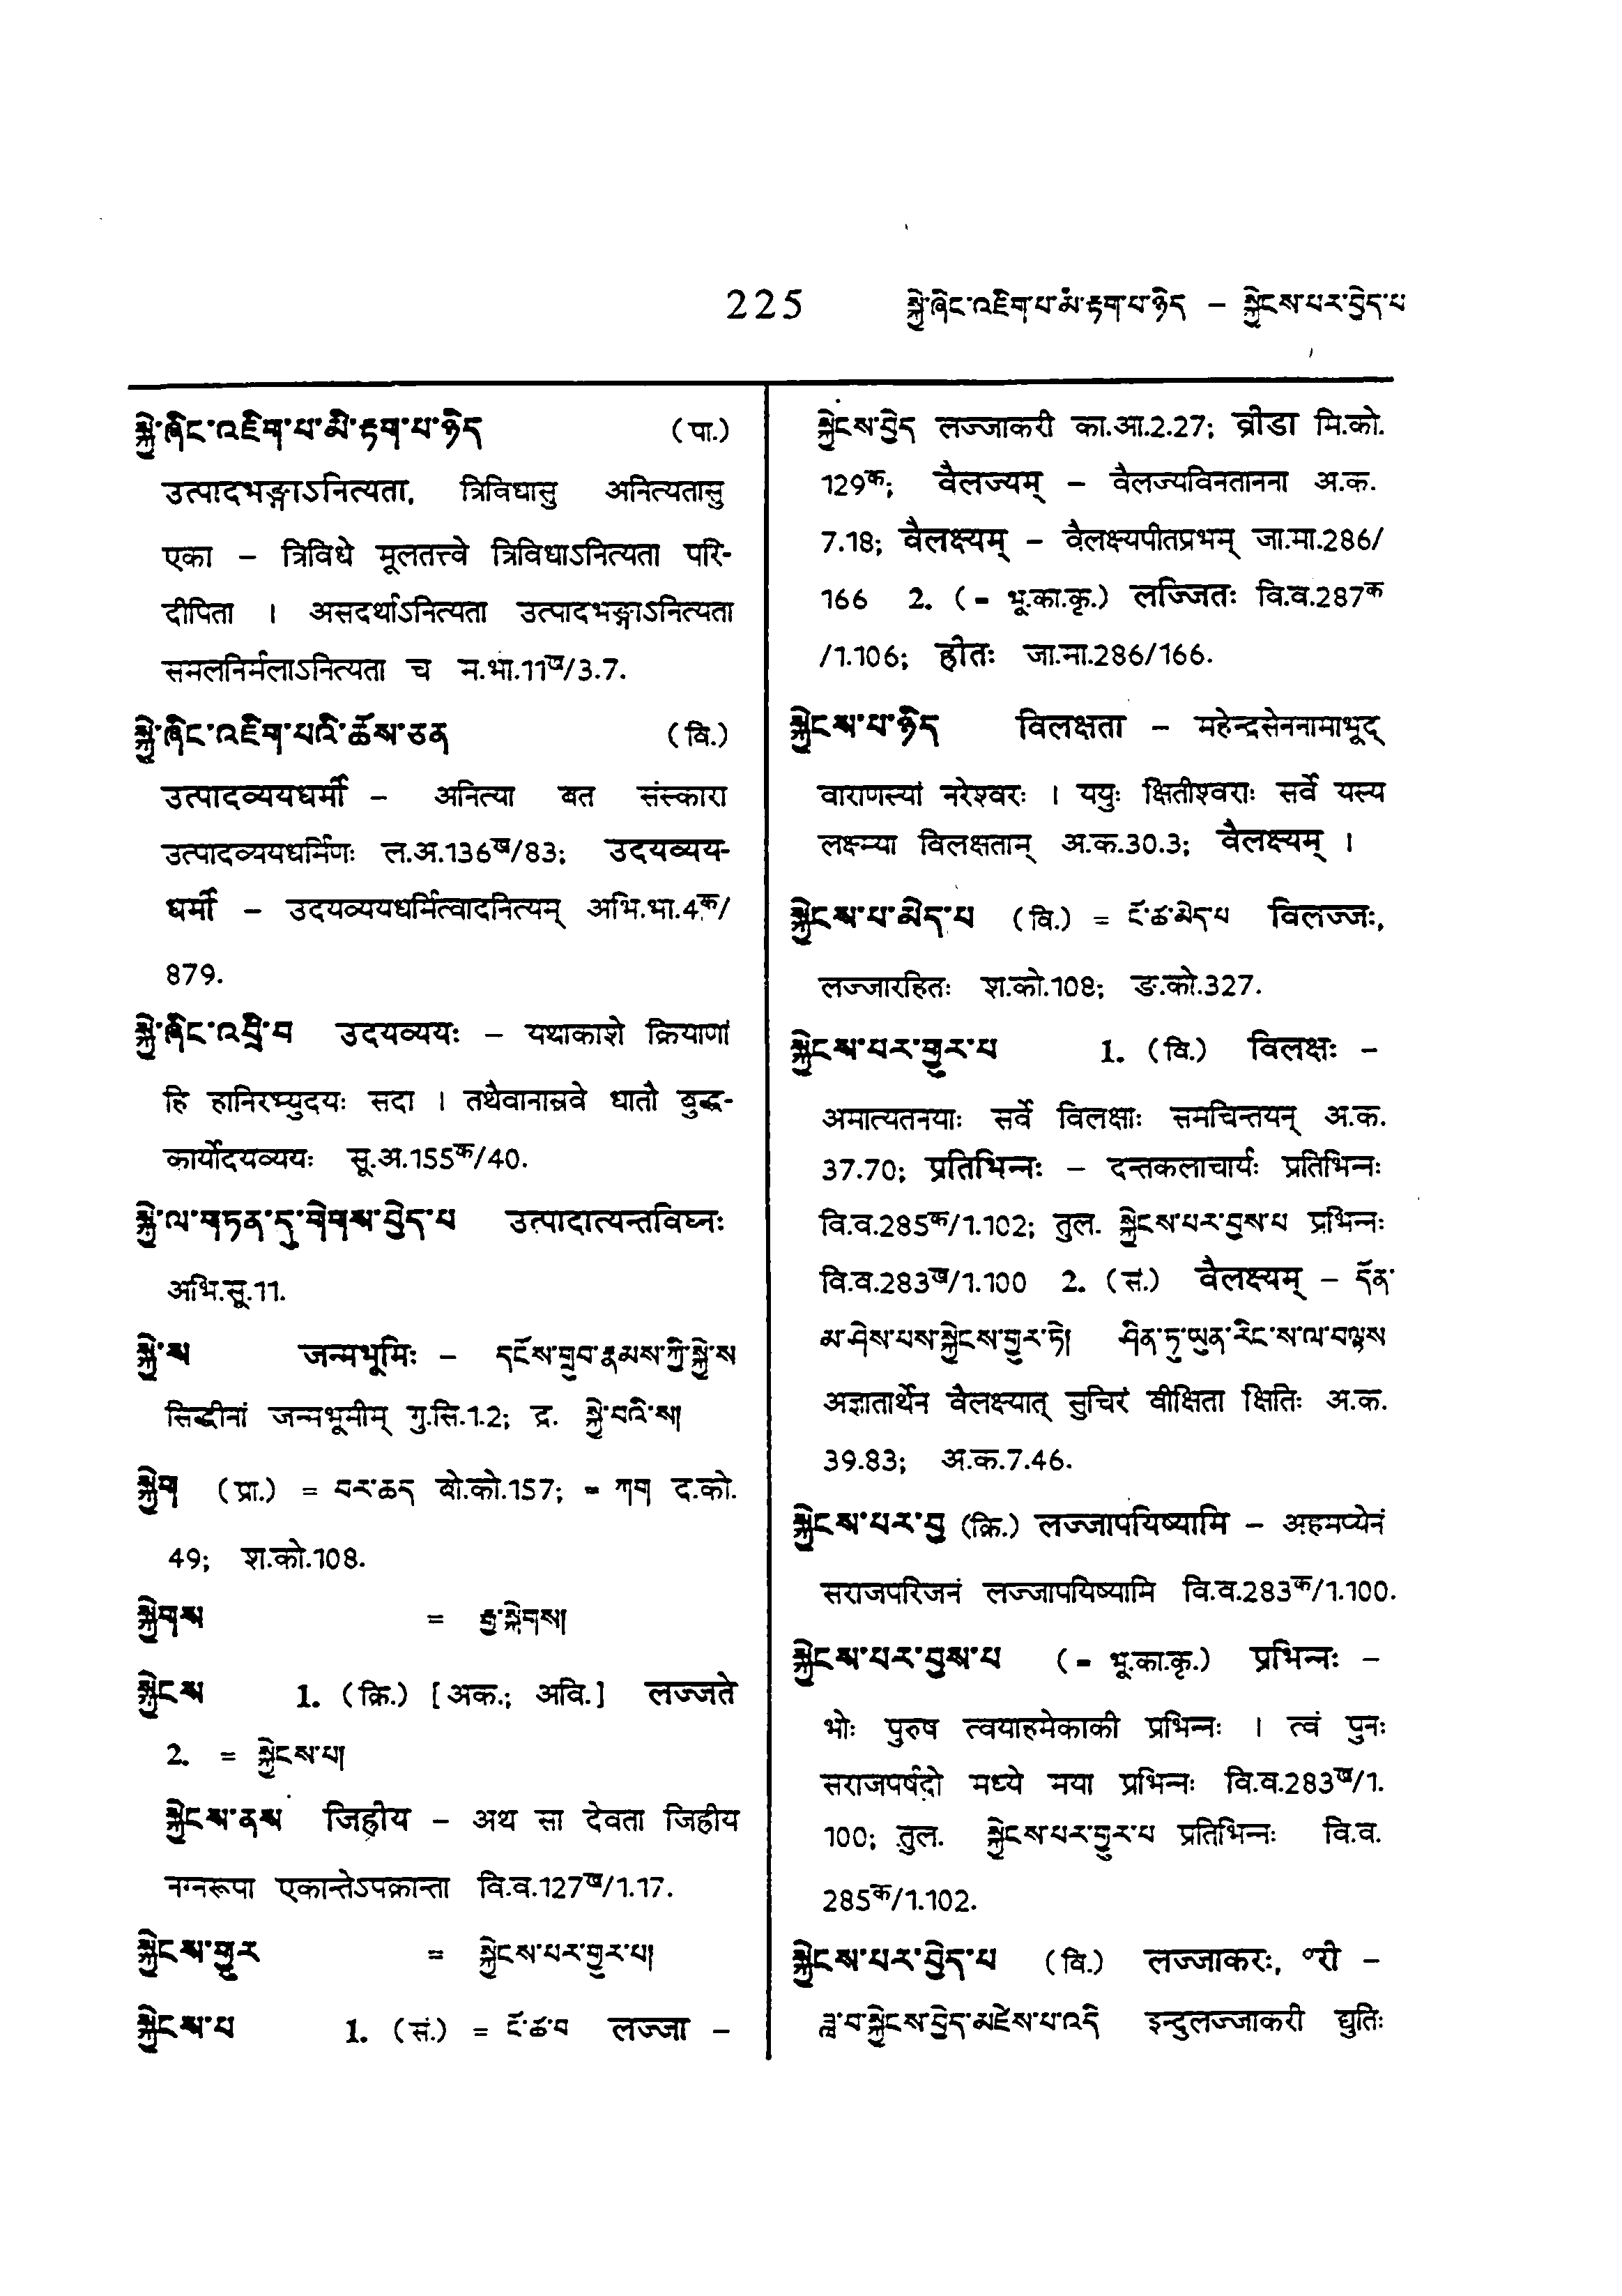 225 སྐྱེ་ཞིང་འཇིག་པ་མི་རྟག་པ་ཉིད – སྐྱེངས་པར་བྱེད་པ
སྐྱེ་ཞིང་འཇིག་པ་མི་རྟག་པ་ཉིད (पा.)
उत्पादभङ्गाऽनित्यता, त्रिविधासु अनित्यतासु
एका – त्रिविधे मूलतत्त्वे त्रिविधाऽनित्यता परि-
दीपिता । असदर्थाऽनित्यता उत्पादभङ्गाऽनित्यता
समलनिर्मलाऽनित्यता च म.भा.11ख/3.7.
སྐྱེ་ཞིང་འཇིག་པའི་ཆོས་ཅན (वि.)
उत्पादव्ययधर्मी – अनित्या बत संस्कारा
उत्पादव्ययधर्मिणः ल.अ.136ख/83; उदयव्यय-
धर्मी – उदयव्ययधर्मित्वादनित्यम् अभि.भा.4क/
879.
སྐྱེ་ཞིང་འབྲི་བ उदयव्ययः – यथाकाशे क्रियाणां
हि हानिरभ्युदयः सदा । तथैवानास्रवे धातौ बुद्ध-
कार्योदयव्ययः सू.अ.155क/40.
སྐྱེ་ལ་གཏན་དུ་གེགས་བྱེད་པ उत्पादात्यन्तविघ्नः
अभि.सू.11.
སྐྱེ་ས जन्मभूमिः – དངོས་གྲུབ་རྣམས་ཀྱི་སྐྱེ་ས
सिद्धीनां जन्मभूमीम् गु.सि.1.2; द्र. སྐྱེ་བའི་ས།
སྐྱེག (प्रा.) = བར་ཆད बो.को.157; = ཀག द.को.
49; श.को.108.
སྐྱེགས = རྒྱ་སྐྱེགས།
སྐྱེངས 1. (क्रि.) [अक.; अवि.] लज्जते
2. = སྐྱེངས་པ།
སྐྱེངས་ནས जिह्रीय – अथ सा देवता जिह्रीय
नग्नरूपा एकान्तेऽपक्रान्ता वि.व.127ख/1.17.
སྐྱེངས་གྱུར = སྐྱེངས་པར་གྱུར་པ།
སྐྱེངས་པ 1. (सं.) = ངོ་ཚ་བ लज्जा –
སྐྱེངས་བྱེད लज्जाकरी का.आ.2.27; व्रीडा मि.को.
129क; वैलज्यम् – वैलज्यविनतानना अ.क.
7.18; वैलक्ष्यम् – वैलक्ष्यपीतप्रभम् जा.मा.286/
166 2. (= भू.का.कृ.) लज्जितः वि.व.287क
/1.106; ह्रीतः जा.मा.286/166.
སྐྱེངས་པ་ཉིད विलक्षता – महेन्द्रसेननामाभूद्
वाराणस्यां नरेश्वरः । ययुः क्षितीश्वराः सर्वे यस्य
लक्ष्म्या विलक्षताम् अ.क.30.3; वैलक्ष्यम् ।
སྐྱེངས་པ་མེད་པ (वि.) = ངོ་ཚ་མེད་པ विलज्जः,
लज्जारहितः श.को.108; ङ.को.327.
སྐྱེངས་པར་གྱུར་པ 1. (वि.) विलक्षः –
अमात्यतनयाः सर्वे विलक्षाः समचिन्तयन् अ.क.
37.70; प्रतिभिन्नः – दन्तकलाचार्यः प्रतिभिन्नः
वि.व.285क/1.102; तुल. སྐྱེངས་པར་བྱས་པ प्रभिन्नः
वि.व.283ख/1.100 2. (सं.) वैलक्ष्यम् – དོན་
མ་ཤེས་པས་སྐྱེངས་གྱུར་ཏེ། ཤིན་ཏུ་ཡུན་རིང་ས་ལ་བལྟས
अज्ञातार्थेन वैलक्ष्यात् सुचिरं वीक्षिता क्षितिः अ.क.
39.83; अ.क.7.46.
སྐྱེངས་པར་བྱ (क्रि.) लज्जापयिष्यामि – अहमप्येनं
सराजपरिजनं लज्जापयिष्यामि वि.व.283क/1.100.
སྐྱེངས་པར་བྱས་པ (= भू.का.कृ.) प्रभिन्नः –
भोः पुरुष त्वयाहमेकाकी प्रभिन्नः । त्वं पुनः
सराजपर्षदो मध्ये मया प्रभिन्नः वि.व.283ख/1.
100; तुल. སྐྱེངས་པར་གྱུར་པ प्रतिभिन्नः वि.व.
285क/1.102.
སྐྱེངས་པར་བྱེད་པ (वि.) लज्जाकरः, ॰री –
ཟླ་བ་སྐྱེངས་བྱེད་མཛེས་པ་འདི इन्दुलज्जाकरी द्युतिः